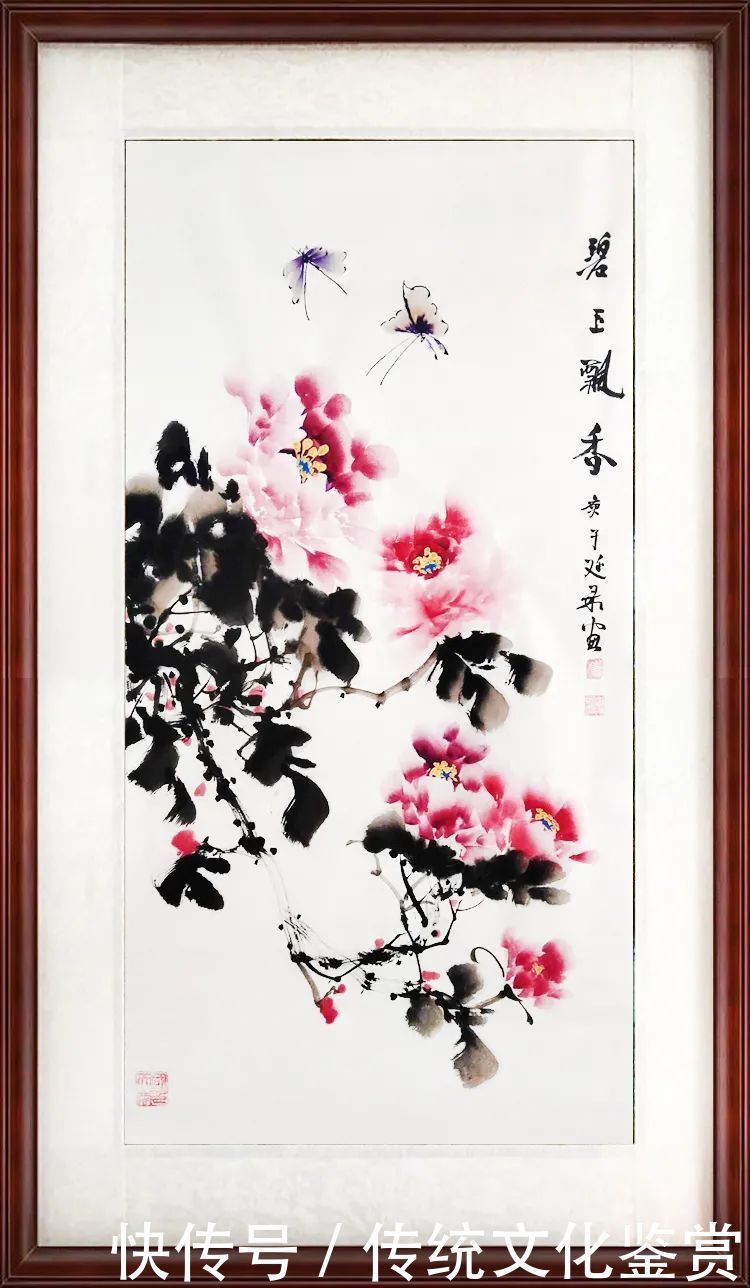 碧玉飘香
庚子延景画
快传号 / 传统文化鉴赏